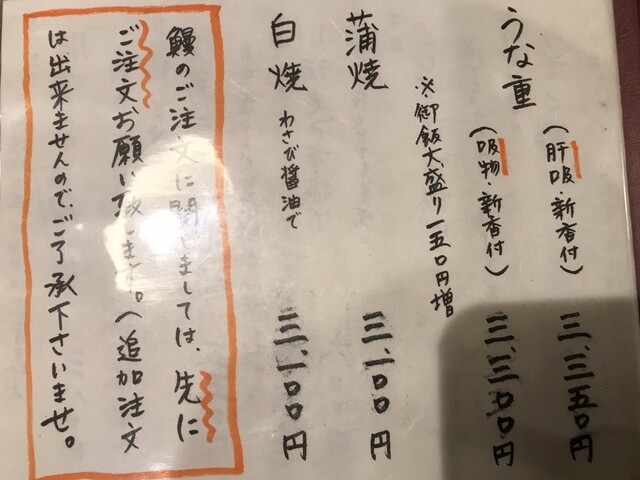 うな重
(肝吸・新香付) 三、三五〇円
(吸物・新香付) 三、三〇〇円
※御飯大盛り一五〇円増
蒲焼 三、一〇〇円
白焼 わさび醤油で 三、一〇〇円
鰻のご注文に関しましては、先に
ご注文お願い致します。(追加注文
は出来ませんので、ご了承下さいませ。